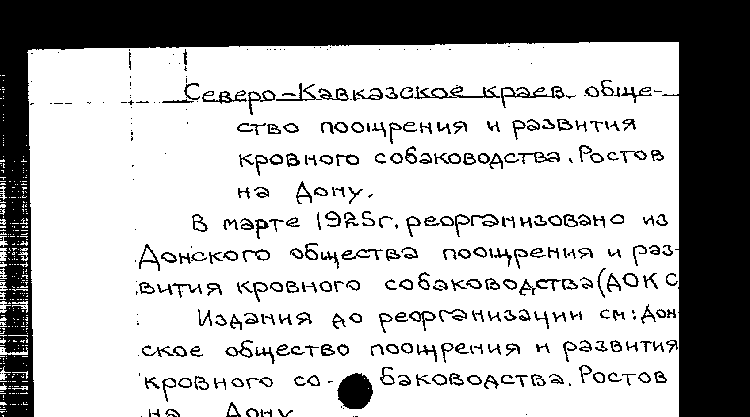 Северо-Кавказское краев. обще-
ство поощрения и развития
кровного собаководства. Ростов
на Дону.
В марте 1925г. реорганизовано из
Донского общества поощрения и раз-
вития кровного собаководства (ДОКС
Издания до реорганизации см: Дон-
ское общество поощрения и развития
кровного со- баководства. Ростов
на Дону